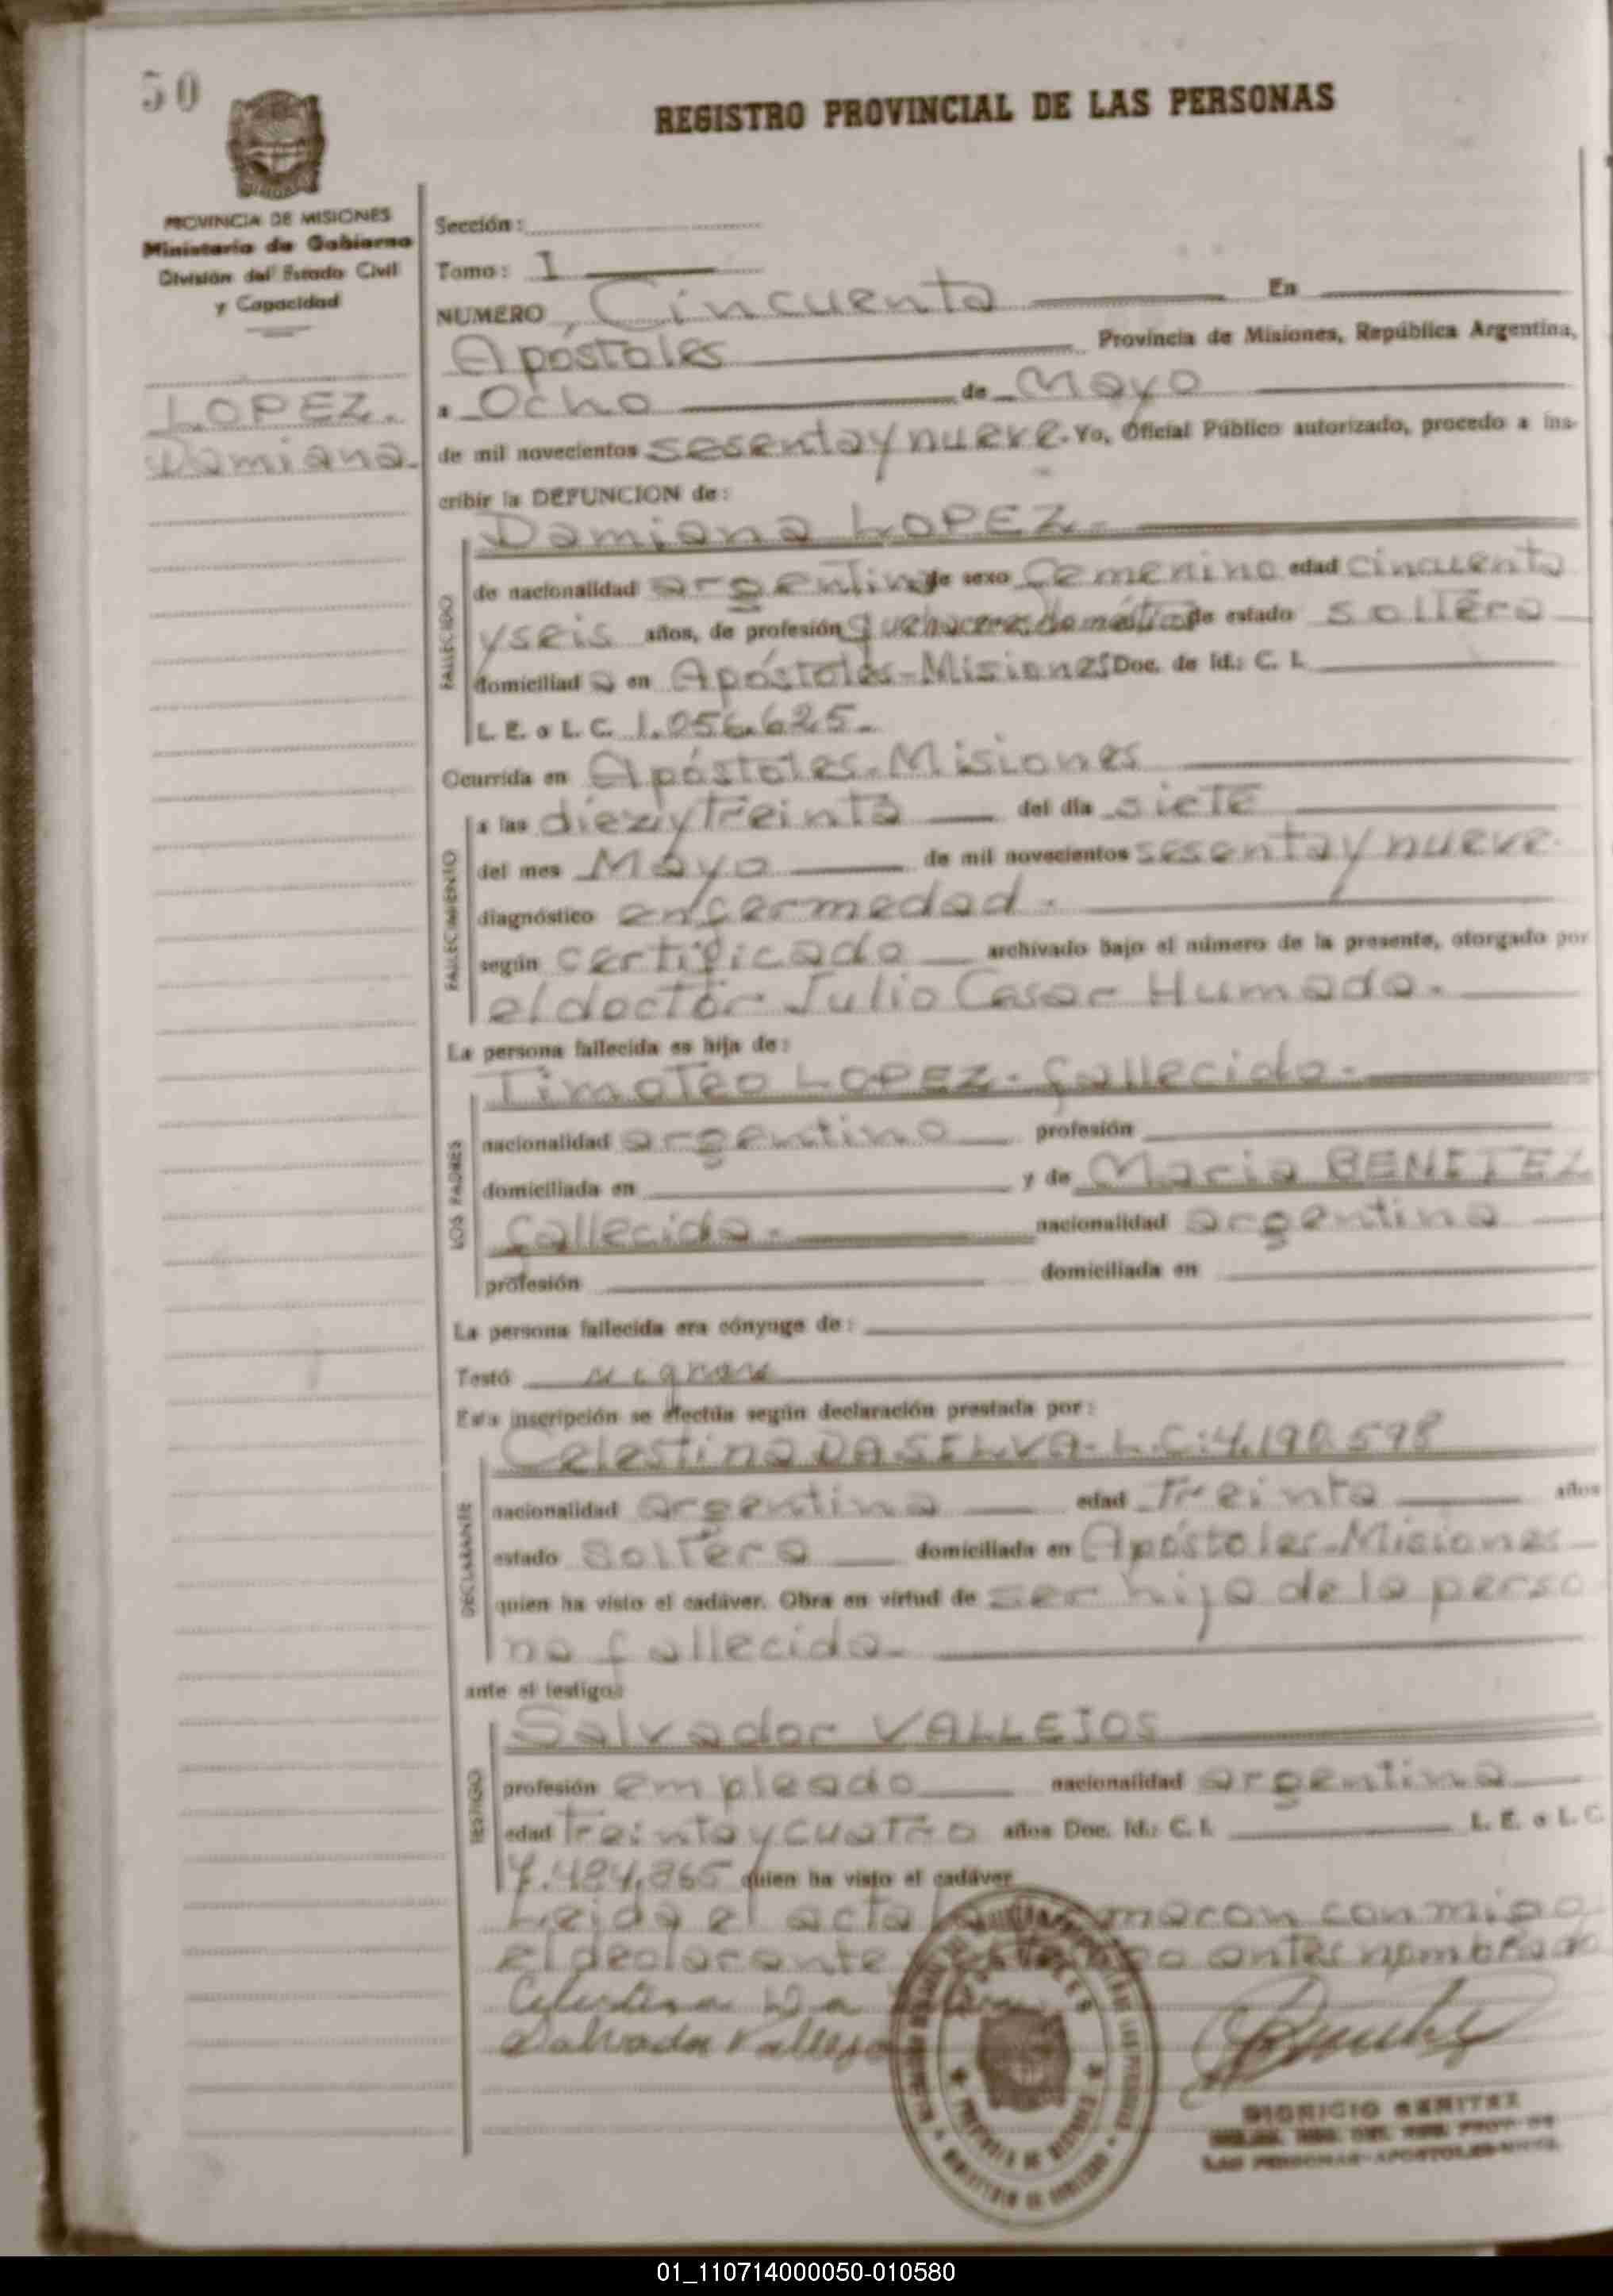 50
REGISTRO PROVINCIAL DE LAS PERSONAS
PROVINCIA DE MISIONES
Ministerio de Gobierno
División del Estado Civil
y Capacidad
Sección:
Tomo: I
NUMERO, Cincuenta En
Apóstoles Provincia de Misiones, República Argentina,
LOPEZ.
a Ocho de Mayo
Damiana.
de mil novecientos sesenta y nueve. Yo, Oficial Público autorizado, procedo a ins-
cribir la DEFUNCION de:
Damiana LOPEZ-
FALLECIDO
de nacionalidad argentina de sexo femenino edad cincuenta
y seis años, de profesión quehaceres domésticos de estado soltera
domiciliad a en Apóstoles-Misiones Doc. de Id.: C. I.
L. E. o L. C. 1.056.625.-
Ocurrida en Apóstoles-Misiones
FALLECIMIENTO
a las diez y treinta del día siete
del mes Mayo de mil novecientos sesenta y nueve.
diagnóstico enfermedad.
según certificado archivado bajo el número de la presente, otorgado por
el doctor Julio Cesar Humada.
La persona fallecida es hija de:
LOS PADRES
Timoteo LOPEZ- fallecido-
nacionalidad argentino profesión
domiciliada en y de Maria BENITEZ
fallecida- nacionalidad argentina
profesión domiciliada en
La persona fallecida era cónyuge de:
Testó
Esta inscripción se efectúa según declaración prestada por:
DECLARANTE
Celestina DA SILVA-L.C:4.190.598
nacionalidad argentina edad treinta años
estado soltera domiciliada en Apóstoles-Misiones
quien ha visto el cadáver. Obra en virtud de ser hija de la perso
na fallecida-
ante el testigo:
TESTIGO
Salvador VALLEJOS
profesión empleado nacionalidad argentina
edad treinta y cuatro años Doc. Id.: C. I. L. E. o L. C.
quien ha visto el cadáver
Leida el acta conmigo
el declarante antes nombrado
Celestina Da
Salvador Vallejos
PROVINCIA DE MISIONES
MINISTERIO DE GOBIERNO
DIONICIO BENITEZ
LAS PERSONAS-APOSTOLES
01_110714000050-010580